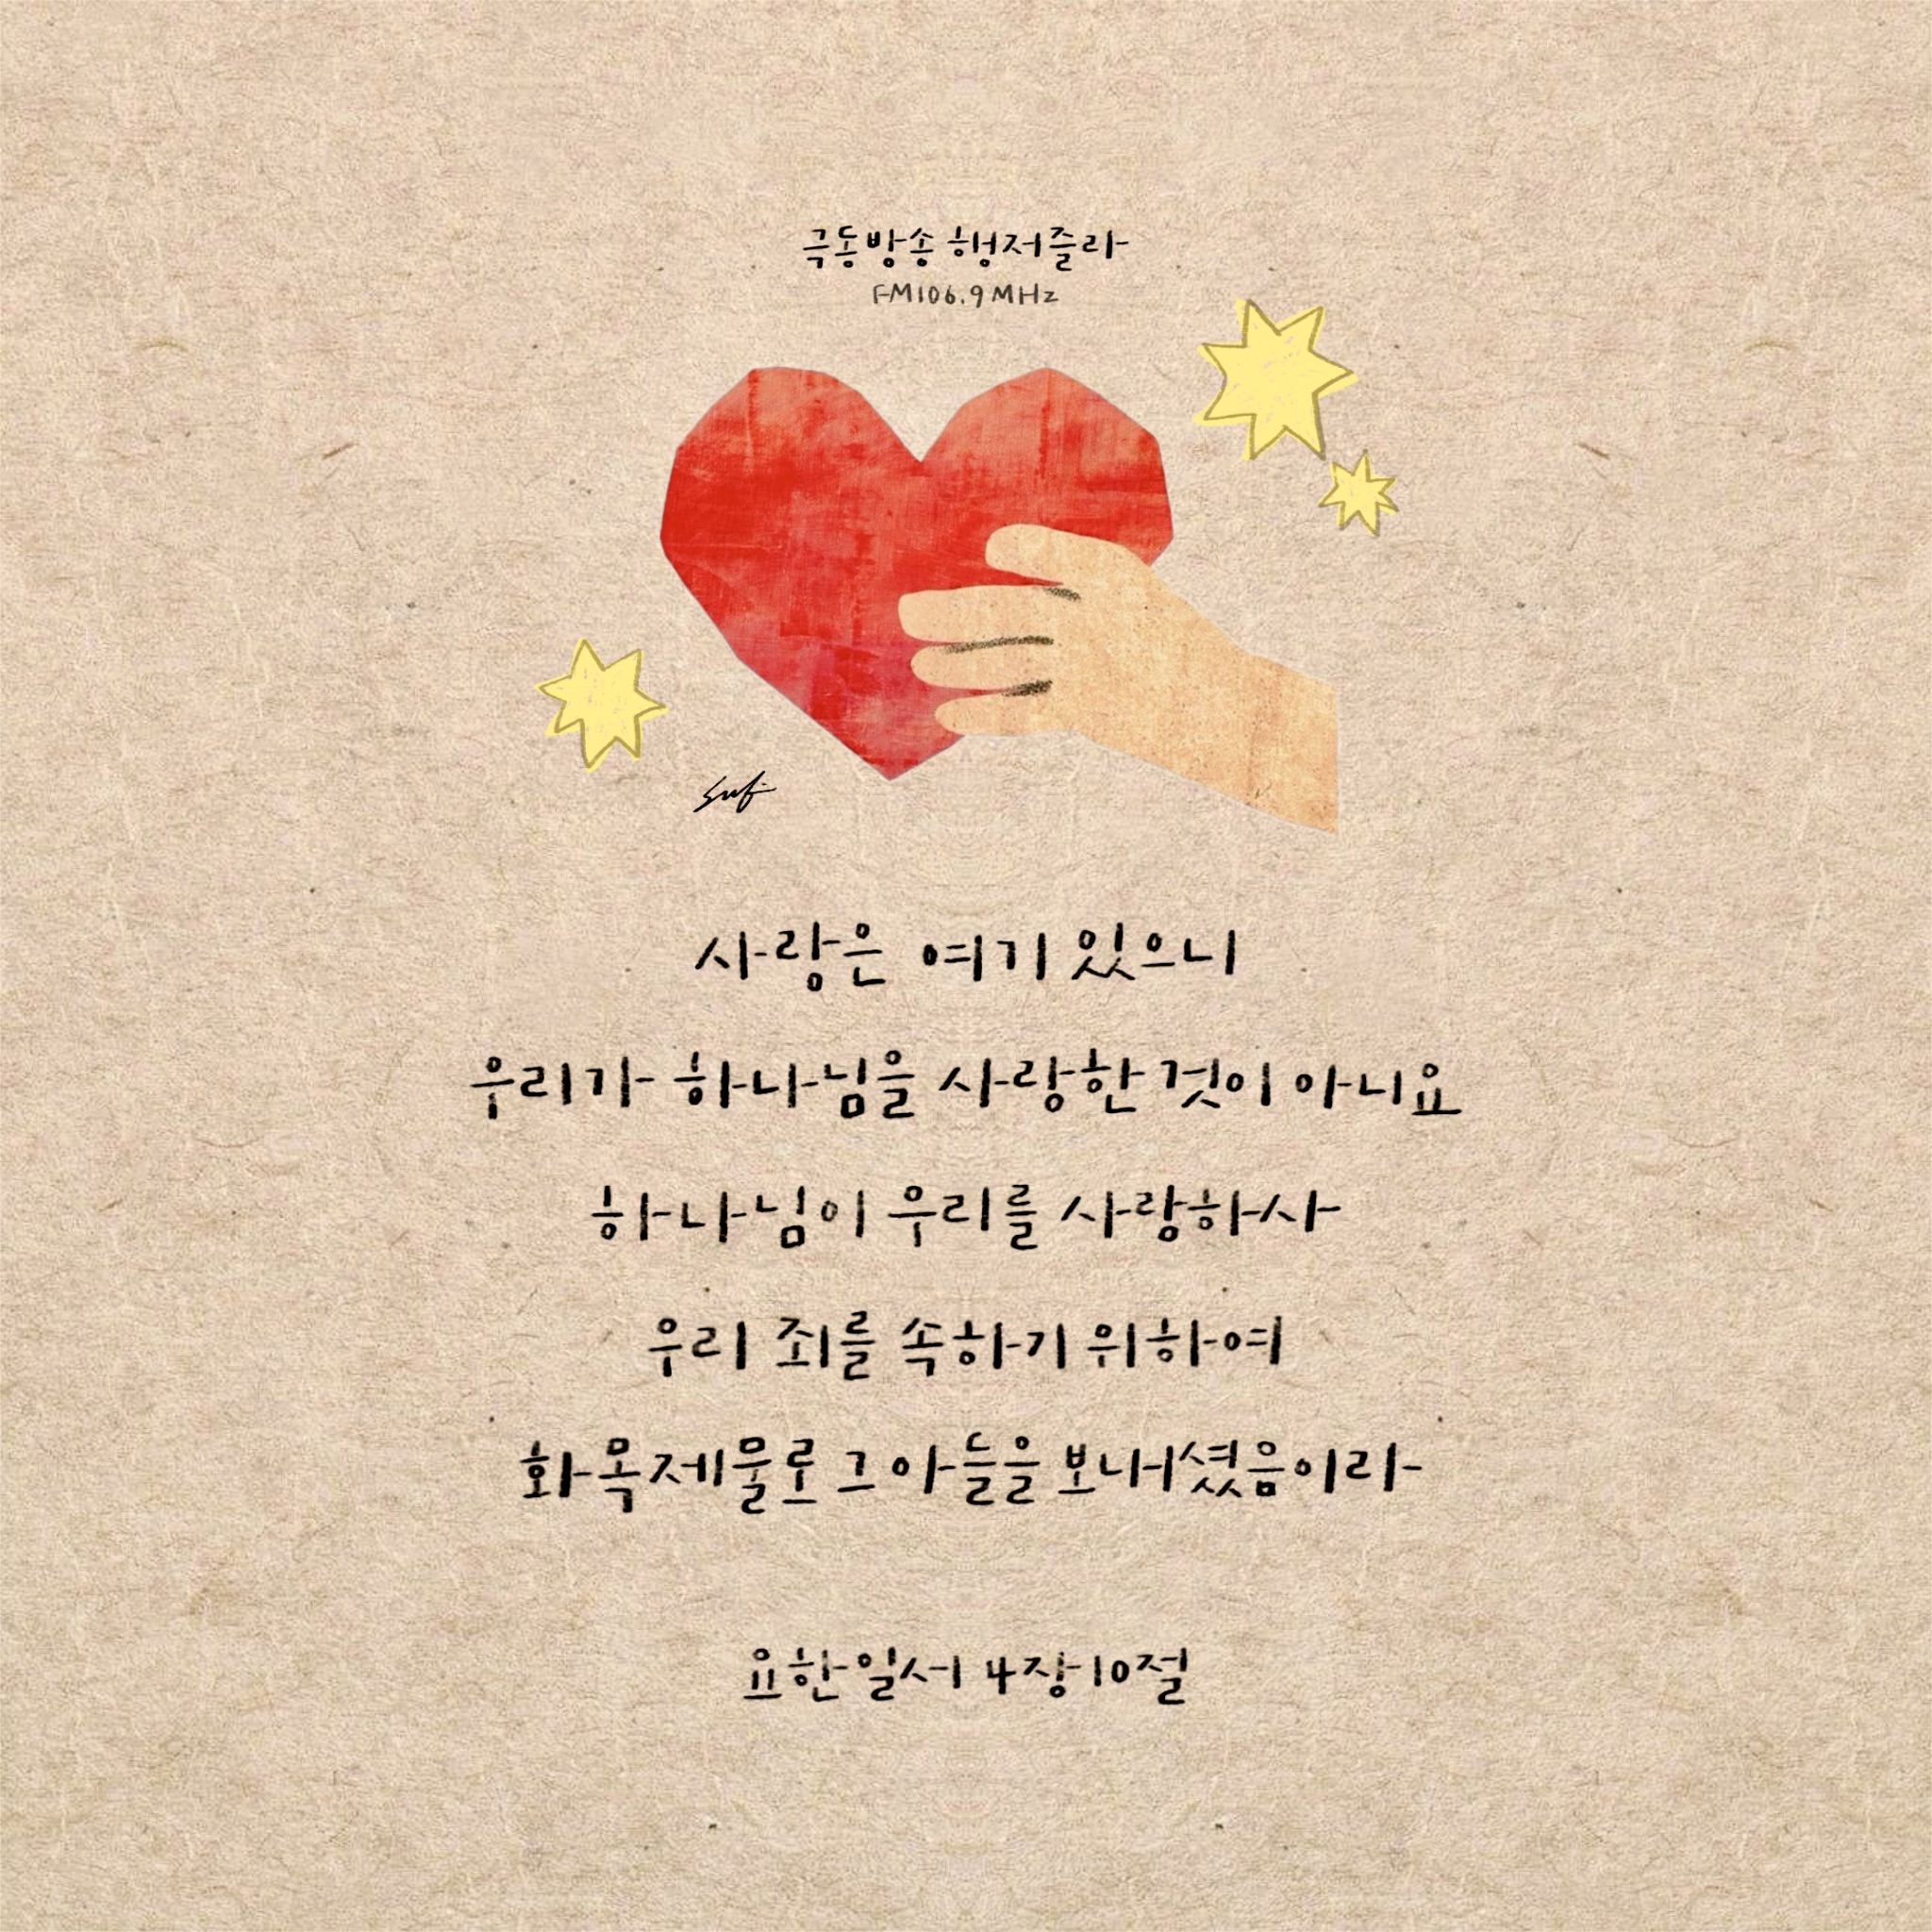 극동방송 행저즐라
FM106.9MHz
사랑은 여기 있으니
우리가 하나님을 사랑한 것이 아니요
하나님이 우리를 사랑하사
우리 죄를 속하기 위하여
화목제물로 그 아들을 보내셨음이라
요한일서 4장10절